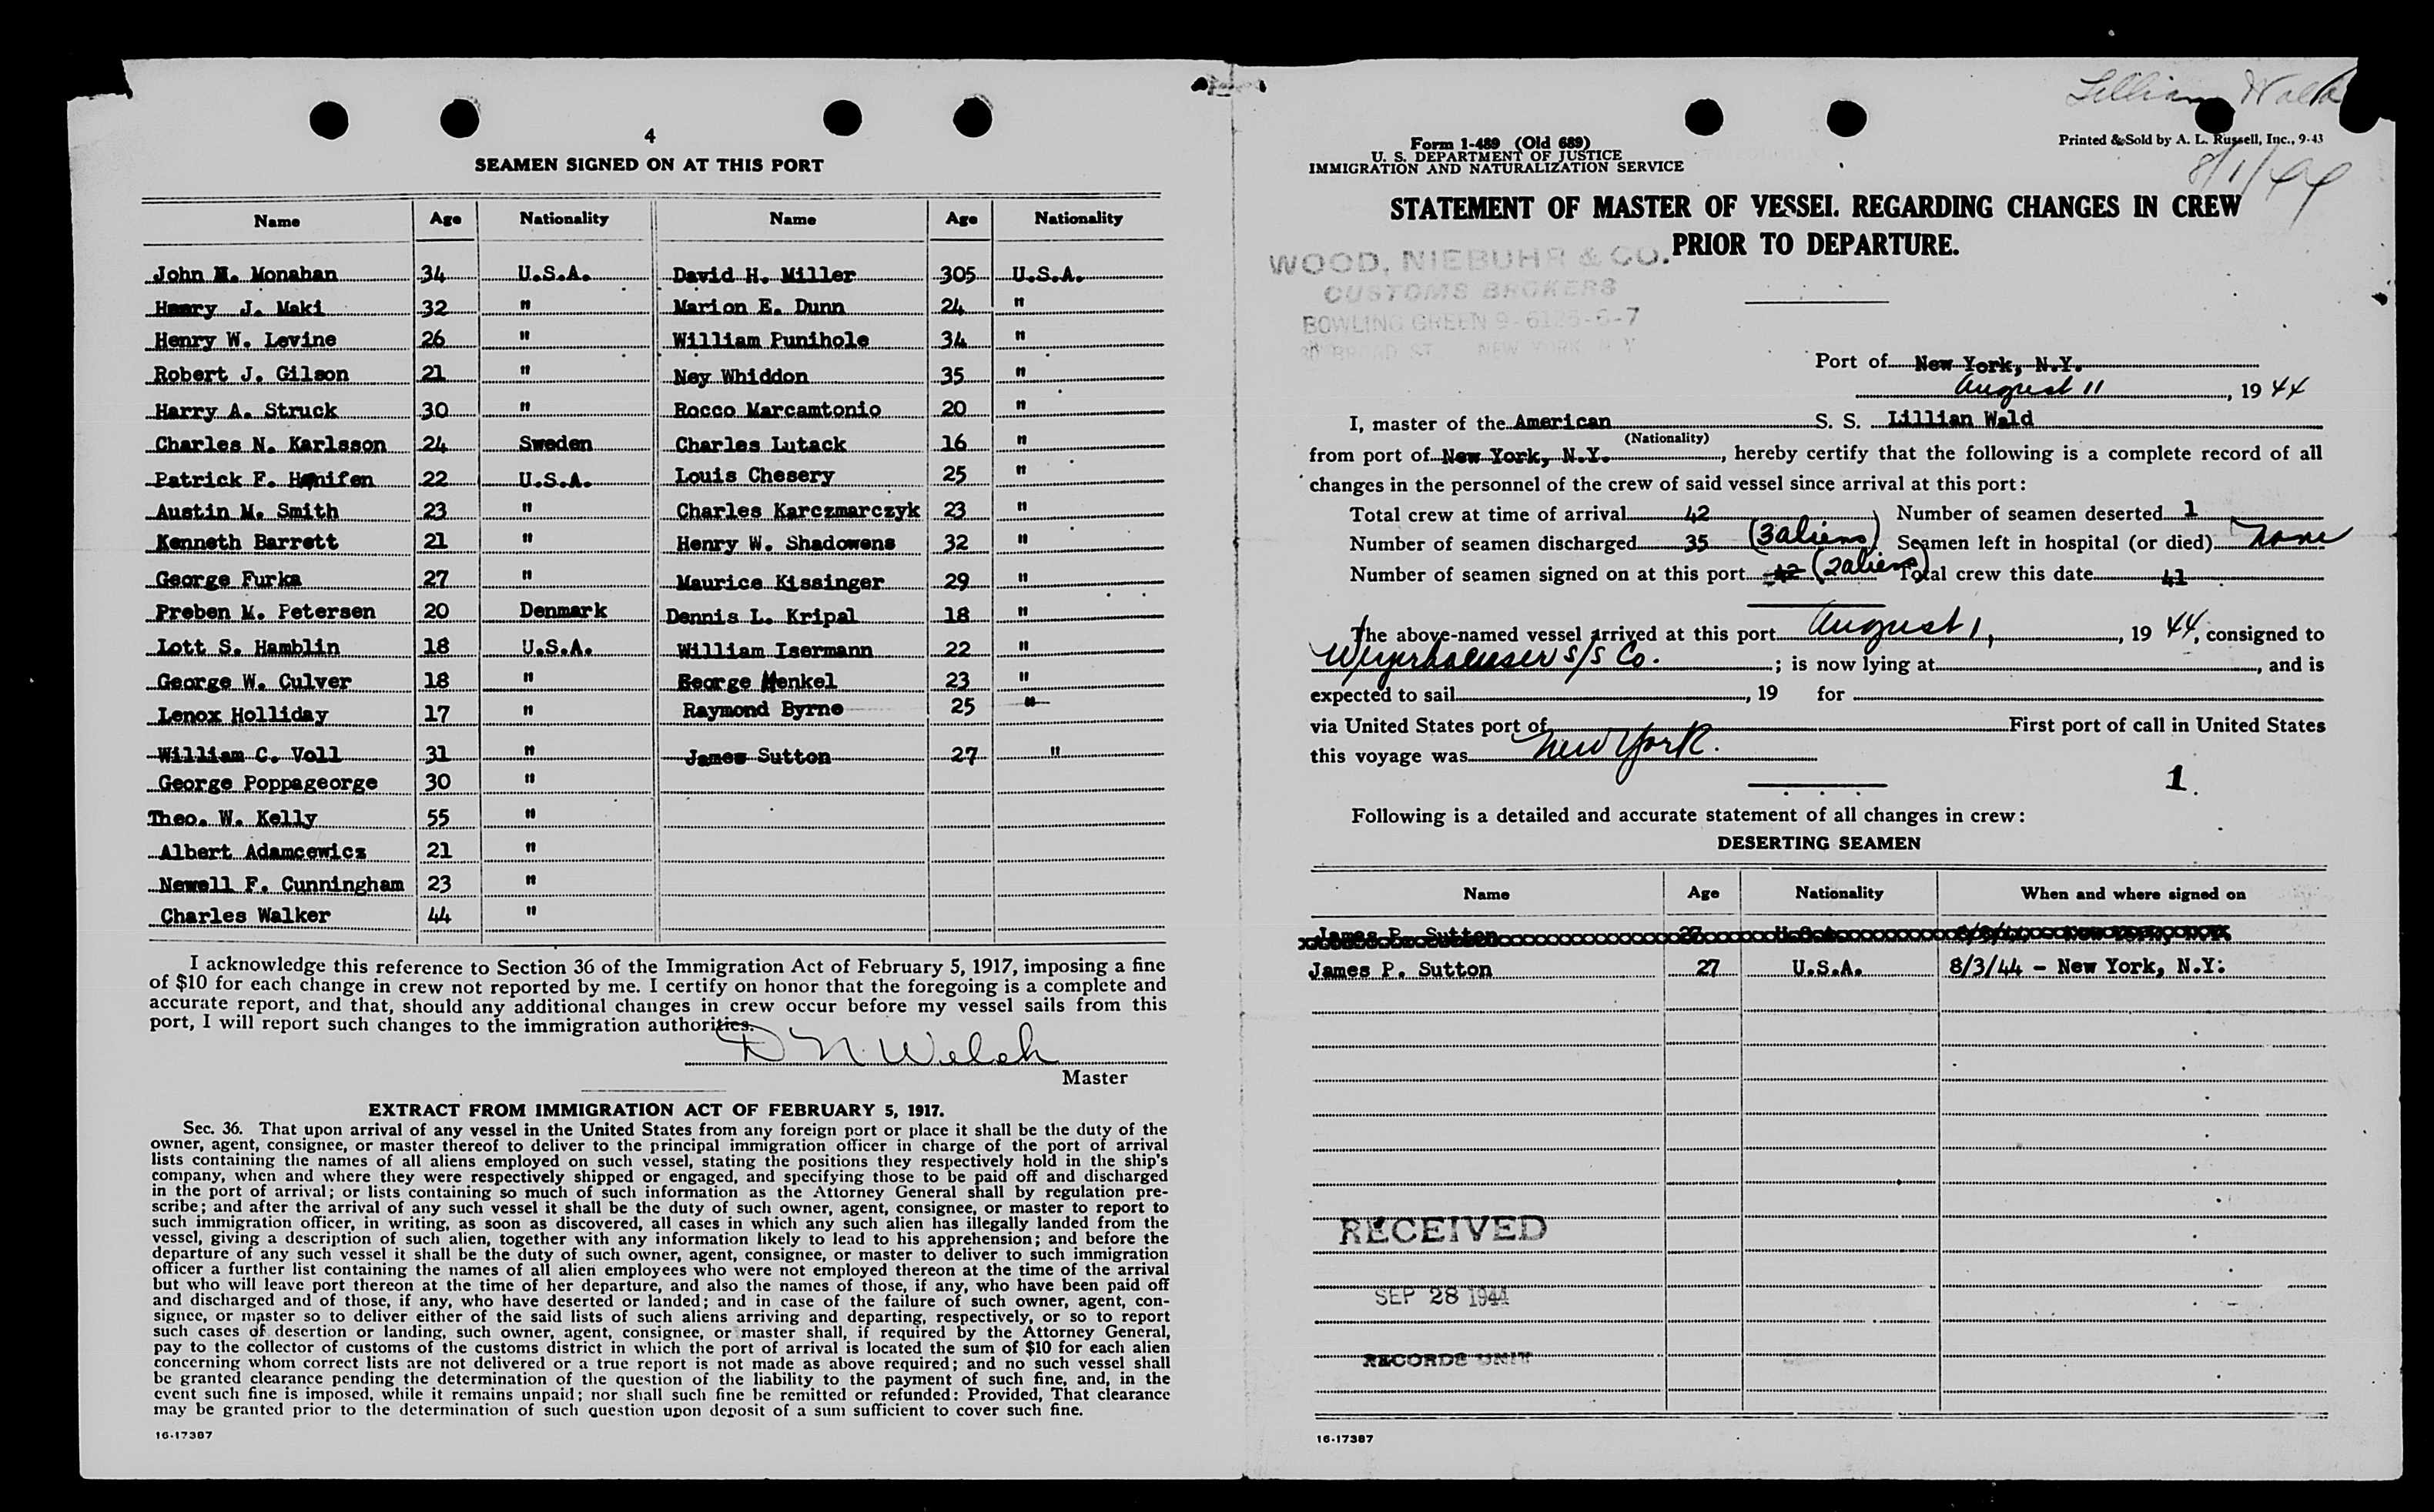 4
SEAMEN SIGNED ON AT THIS PORT
Name Age Nationality Name Age Nationality
John M. Monahan 34 U.S.A. David H. Miller 305 U.S.A.
Henry J. Maki 32 " Marion E. Dunn 24 "
Henry W. Levine 26 " William Punihole 34 "
Robert J. Gilson 21 " Ney Whiddon 35 "
Harry A. Struck 30 " Rocco Marcamtonio 20 "
Charles N. Karlsson 24 Sweden Charles Lutack 16 "
Patrick F. Hanifen 22 U.S.A. Louis Chesery 25 "
Austin M. Smith 23 " Charles Karczmarczyk 23 "
Kenneth Barrett 21 " Henry W. Shadowens 32 "
George Furka 27 " Maurice Kissinger 29 "
Preben M. Petersen 20 Denmark Dennis L. Kripal 18 "
Lott S. Hamblin 18 U.S.A. William Isermann 22 "
George W. Culver 18 " George Henkel 23 "
Lenox Holliday 17 " Raymond Byrne 25 "
William C. Voll 31 " James Sutton 27 "
George Poppageorge 30 "
Theo. W. Kelly 55 "
Albert Adamcewicz 21 "
Newell F. Cunningham 23 "
Charles Walker 44 "
I acknowledge this reference to Section 36 of the Immigration Act of February 5, 1917, imposing a fine
of $10 for each change in crew not reported by me. I certify on honor that the foregoing is a complete and
accurate report, and that, should any additional changes in crew occur before my vessel sails from this
port, I will report such changes to the immigration authorities.
D N Welch
Master
EXTRACT FROM IMMIGRATION ACT OF FEBRUARY 5, 1917.
Sec. 36. That upon arrival of any vessel in the United States from any foreign port or place it shall be the duty of the
owner, agent, consignee, or master thereof to deliver to the principal immigration officer in charge of the port of arrival
lists containing the names of all aliens employed on such vessel, stating the positions they respectively hold in the ship's
company, when and where they were respectively shipped or engaged, and specifying those to be paid off and discharged
in the port of arrival; or lists containing so much of such information as the Attorney General shall by regulation pre-
scribe; and after the arrival of any such vessel it shall be the duty of such owner, agent, consignee, or master to report to
such immigration officer, in writing, as soon as discovered, all cases in which any such alien has illegally landed from the
vessel, giving a description of such alien, together with any information likely to lead to his apprehension; and before the
departure of any such vessel it shall be the duty of such owner, agent, consignee, or master to deliver to such immigration
officer a further list containing the names of all alien employees who were not employed thereon at the time of the arrival
but who will leave port thereon at the time of her departure, and also the names of those, if any, who have been paid off
and discharged and of those, if any, who have deserted or landed; and in case of the failure of such owner, agent, con-
signee, or master so to deliver either of the said lists of such aliens arriving and departing, respectively, or so to report
such cases of desertion or landing, such owner, agent, consignee, or master shall, if required by the Attorney General,
pay to the collector of customs of the customs district in which the port of arrival is located the sum of $10 for each alien
concerning whom correct lists are not delivered or a true report is not made as above required; and no such vessel shall
be granted clearance pending the determination of the question of the liability to the payment of such fine, and, in the
event such fine is imposed, while it remains unpaid; nor shall such fine be remitted or refunded: Provided, That clearance
may be granted prior to the determination of such question upon deposit of a sum sufficient to cover such fine.
16-17387
Lillian Wald
Form 1-489 (Old 689)
U. S. DEPARTMENT OF JUSTICE
IMMIGRATION AND NATURALIZATION SERVICE
Printed & Sold by A. L. Russell, Inc., 9-43
8/1/44
STATEMENT OF MASTER OF VESSEL REGARDING CHANGES IN CREW
PRIOR TO DEPARTURE.
WOOD, NIEBUHR & CO.
CUSTOMS BROKERS
BOWLING GREEN 9-6125-6-7
80 BROAD ST NEW YORK N Y
Port of New York, N.Y.
August 11, 1944
I, master of the American S. S. Lillian Wald
(Nationality)
from port of New York, N.Y., hereby certify that the following is a complete record of all
changes in the personnel of the crew of said vessel since arrival at this port:
Total crew at time of arrival 42 Number of seamen deserted 1
Number of seamen discharged 35 (3 aliens) Seamen left in hospital (or died) None
Number of seamen signed on at this port (2 aliens) Total crew this date 41
The above-named vessel arrived at this port August 1, 1944, consigned to
Weyerhaeuser S/S Co.; is now lying at, and is
expected to sail, 19 for
via United States port of First port of call in United States
this voyage was New York.
1
Following is a detailed and accurate statement of all changes in crew:
DESERTING SEAMEN
Name Age Nationality When and where signed on
James P. Sutton 27 U.S.A.
James P. Sutton 27 U.S.A. 8/3/44 - New York, N.Y:
RECEIVED
SEP 28 1944
RECORDS UNIT
16-17387